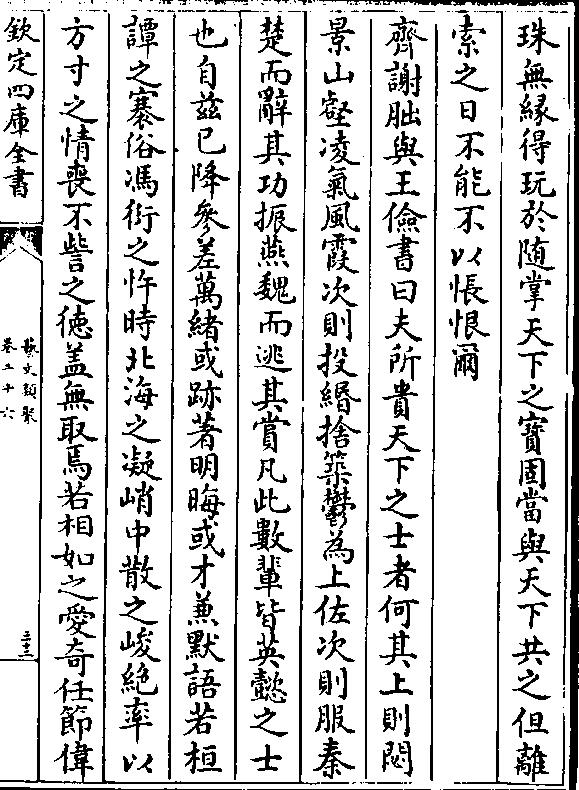 珠無縁得玩於随掌天下之寶固當與天下共之但離
索之日不能不以悵恨爾
齊謝朏與王儉書曰夫所貴天下之士者何其上則閟
景山壑凌氣風霞次則投緡捨築鬱為上佐次則服秦
楚而辭其功振燕魏而逃其賞凡此數輩皆英懿之士
也自兹已降參差萬緒或跡著明晦或才兼默語若桓
譚之寡俗馮衍之忤時北海之凝峭中散之峻絶率以
方寸之情喪不訾之徳盖無取焉若相如之愛奇任節偉
欽定四庫全書
藝文類聚
卷二十六
三十三